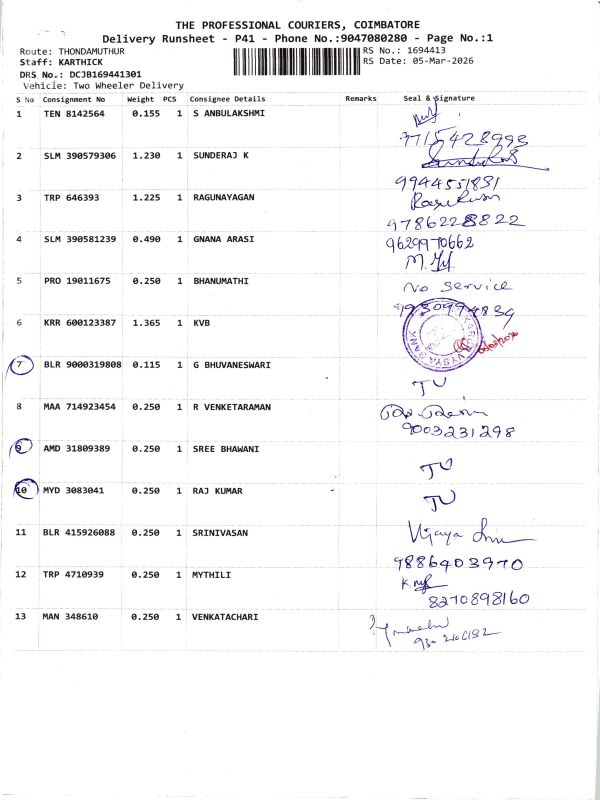 THE PROFESSIONAL COURIERS, COIMBATORE
Delivery Runsheet - P41 - Phone No.:9047080280 - Page No.:1
Route: THONDAMUTHUR
RS No.: 1694413
Staff: KARTHICK
RS Date: 05-Mar-2026
DRS No.: DCJB169441301
Vehicle: Two Wheeler Delivery
S No Consignment No Weight PCS Consignee Details Remarks Seal & Signature
1 TEN 8142564 0.155 1 S ANBULAKSHMI
7715428993
2 SLM 390579306 1.230 1 SUNDERAJ K
9944551831
3 TRP 646393 1.225 1 RAGUNAYAGAN
9786228822
4 SLM 390581239 0.490 1 GNANA ARASI 9629970662
5 PRO 19011675 0.250 1 BHANUMATHI No Service
6 KRR 600123387 1.365 1 KVB
KARUR VYSYA BANK
7 BLR 9000319808 0.115 1 G BHUVANESWARI
TU
8 MAA 714923454 0.250 1 R VENKETARAMAN
9003231298
9 AMD 31809389 0.250 1 SREE BHAWANI
TU
10 MYD 3083041 0.250 1 RAJ KUMAR TU
11 BLR 415926088 0.250 1 SRINIVASAN Vijaya
9886403970
12 TRP 4710939 0.250 1 MYTHILI
8270898160
13 MAN 348610 0.250 1 VENKATACHARI